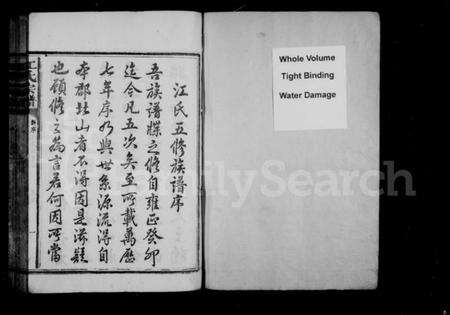 江氏五修族譜序
吾族譜牒之修自雍正癸卯
迄今凡五次矣至所載萬歷
七年序乃與世系源流得自
本郡北山者不得因是滋疑
也顧修之為言若何因所當
江氏宗譜
Whole Volume
Tight Binding
Water Damage
FamilySearch